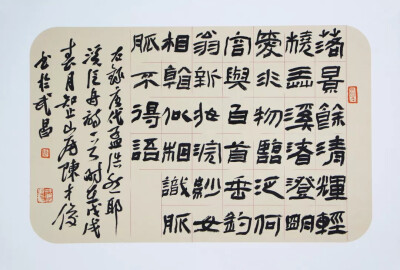 落景餘清輝輕
橈弄溪渚澄明
愛水物臨泛何
容與白首垂釣
翁新妝浣紗女
相看似相識脈
脈不得語
右錄唐代孟浩然耶
溪泛舟詩一首時在戊戌
春月知止山房陳才俊
書於武昌